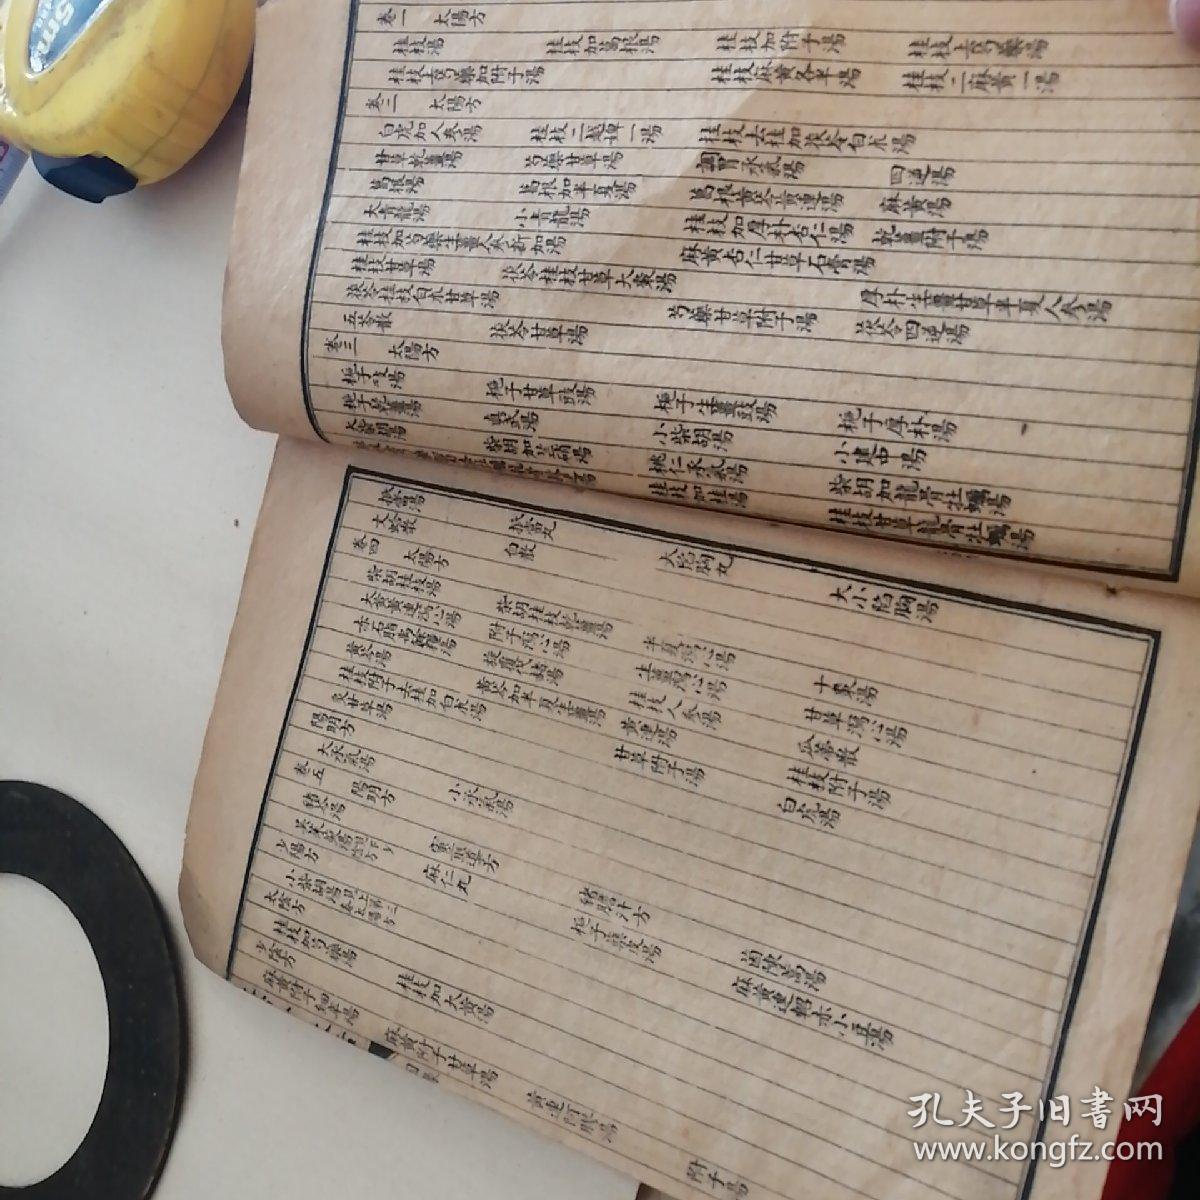 卷一 太陽方
桂枝湯 桂枝加葛根湯 桂枝加附子湯 桂枝去芍藥湯
桂枝去芍藥加附子湯 桂枝麻黃各半湯 桂枝二麻黃一湯
卷二 太陽方
白虎加人參湯 桂枝二越婢一湯 桂枝去桂加茯苓白朮湯
甘草乾薑湯 芍藥甘草湯 調胃承氣湯 四逆湯
葛根湯 葛根加半夏湯 葛根黃芩黃連湯 麻黃湯
大青龍湯 小青龍湯 桂枝加厚朴杏仁湯 乾薑附子湯
桂枝加芍藥生薑人參新加湯 麻黃杏仁甘草石膏湯
桂枝甘草湯 茯苓桂枝甘草大棗湯 厚朴生薑甘草半夏人參湯
茯苓桂枝白朮甘草湯 芍藥甘草附子湯 茯苓四逆湯
五苓散 茯苓甘草湯
卷三 太陽方
梔子豉湯 梔子甘草豉湯 梔子生薑豉湯 梔子厚朴湯
梔子乾薑湯 真武湯 小柴胡湯 小建中湯
大柴胡湯 柴胡加芒硝湯 桃仁承氣湯 柴胡加龍骨牡蠣湯
桂枝加桂湯 桂枝甘草龍骨牡蠣湯
抵當湯 抵當丸 大陷胸丸 大小陷胸湯
文蛤散 白散
卷四 太陽方
柴胡桂枝湯 柴胡桂枝乾薑湯 半夏瀉心湯 十棗湯
大黃黃連瀉心湯 附子瀉心湯 生薑瀉心湯 甘草瀉心湯
赤石脂禹餘糧湯 旋覆代赭湯 桂枝人參湯 瓜蒂散
黃芩湯 黃芩加半夏生薑湯 黃連湯 桂枝附子湯
桂枝附子去桂加白朮湯 甘草附子湯 白虎湯
炙甘草湯
陽明方
大承氣湯 小承氣湯
卷五 陽明方
豬苓湯 蜜煎導方 豬膽汁方 茵陳蒿湯
麻仁丸 梔子蘗皮湯 麻黃連軺赤小豆湯
少陽方
小柴胡湯
太陰方
桂枝加芍藥湯 桂枝加大黃湯
少陰方
麻黃附子細辛湯 麻黃附子甘草湯 黃連阿膠湯 附子湯
孔夫子旧书网
www.kongfz.com